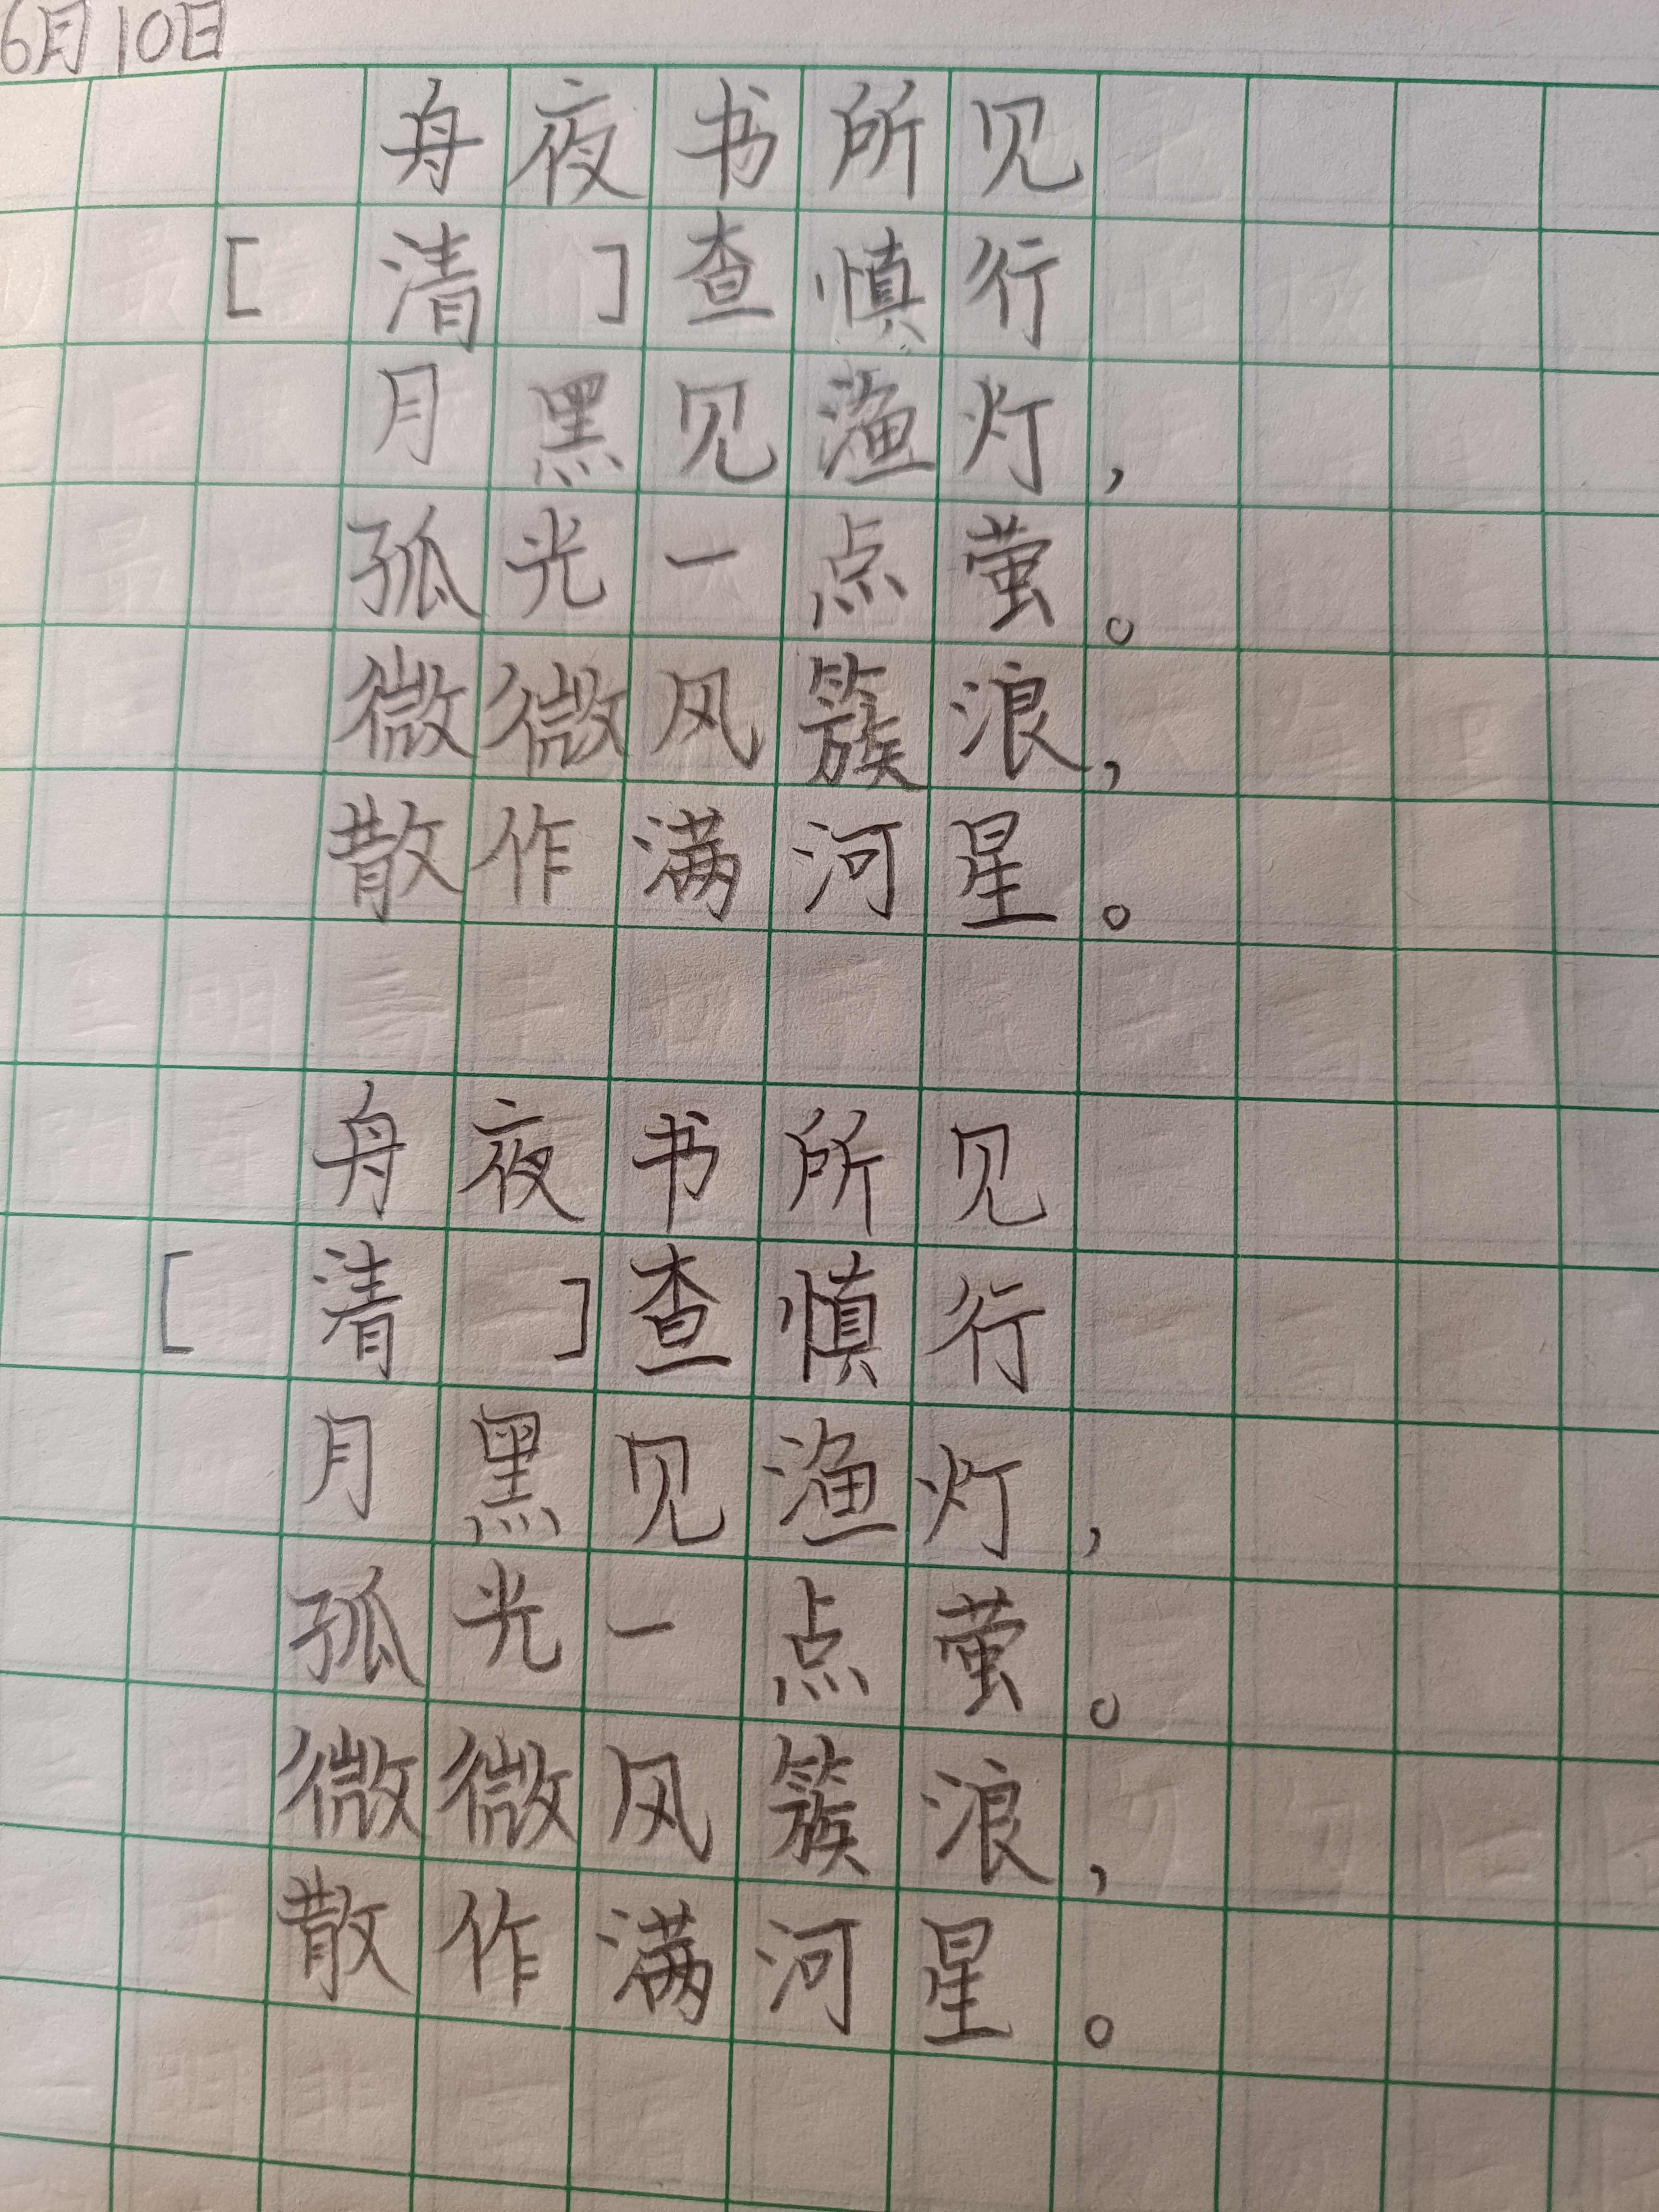 6月10日
舟夜书所见
[清]查慎行
月黑见渔灯，
孤光一点萤。
微微风簇浪，
散作满河星。
舟夜书所见
[清]查慎行
月黑见渔灯，
孤光一点萤。
微微风簇浪，
散作满河星。